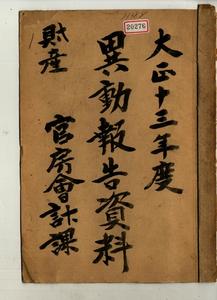 20276
大正十三年度
異動報告資料
財産
官房會計課